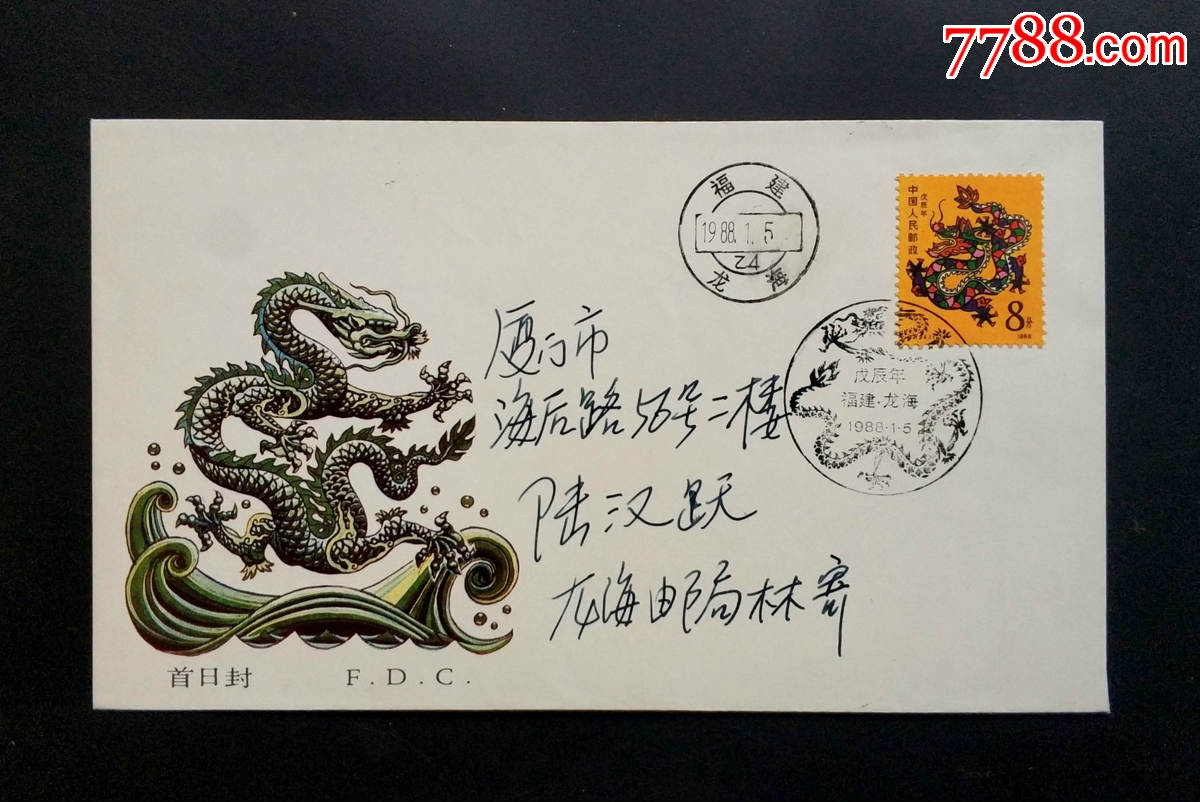 7788.com
福建
1988.1.5
24
龙海
中国人民邮政
戊辰年
8分
1988
戊辰年
福建·龙海
1988·1·5
厦门市
海后路56号二楼
陆汉跃
龙海邮局林寄
首日封 F.D.C.